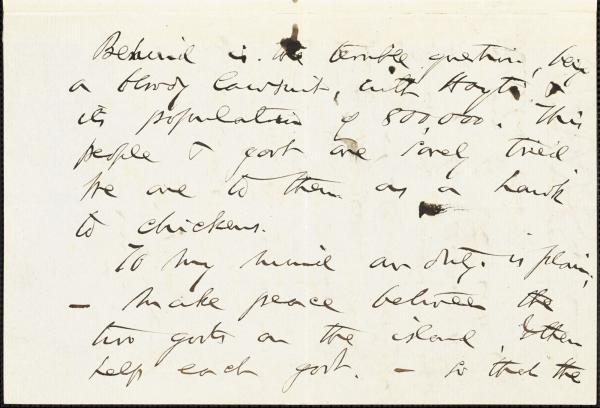 Behind is the terrible question, being
a bloody lawsuit, with Hayti &
its population of 800,000. This
people & govt are sorely tried
We are to them as a hawk
to chickens.
To my mind our duty is plain,
— make peace between the
two govts on the island, & then
help each govt. — So that the